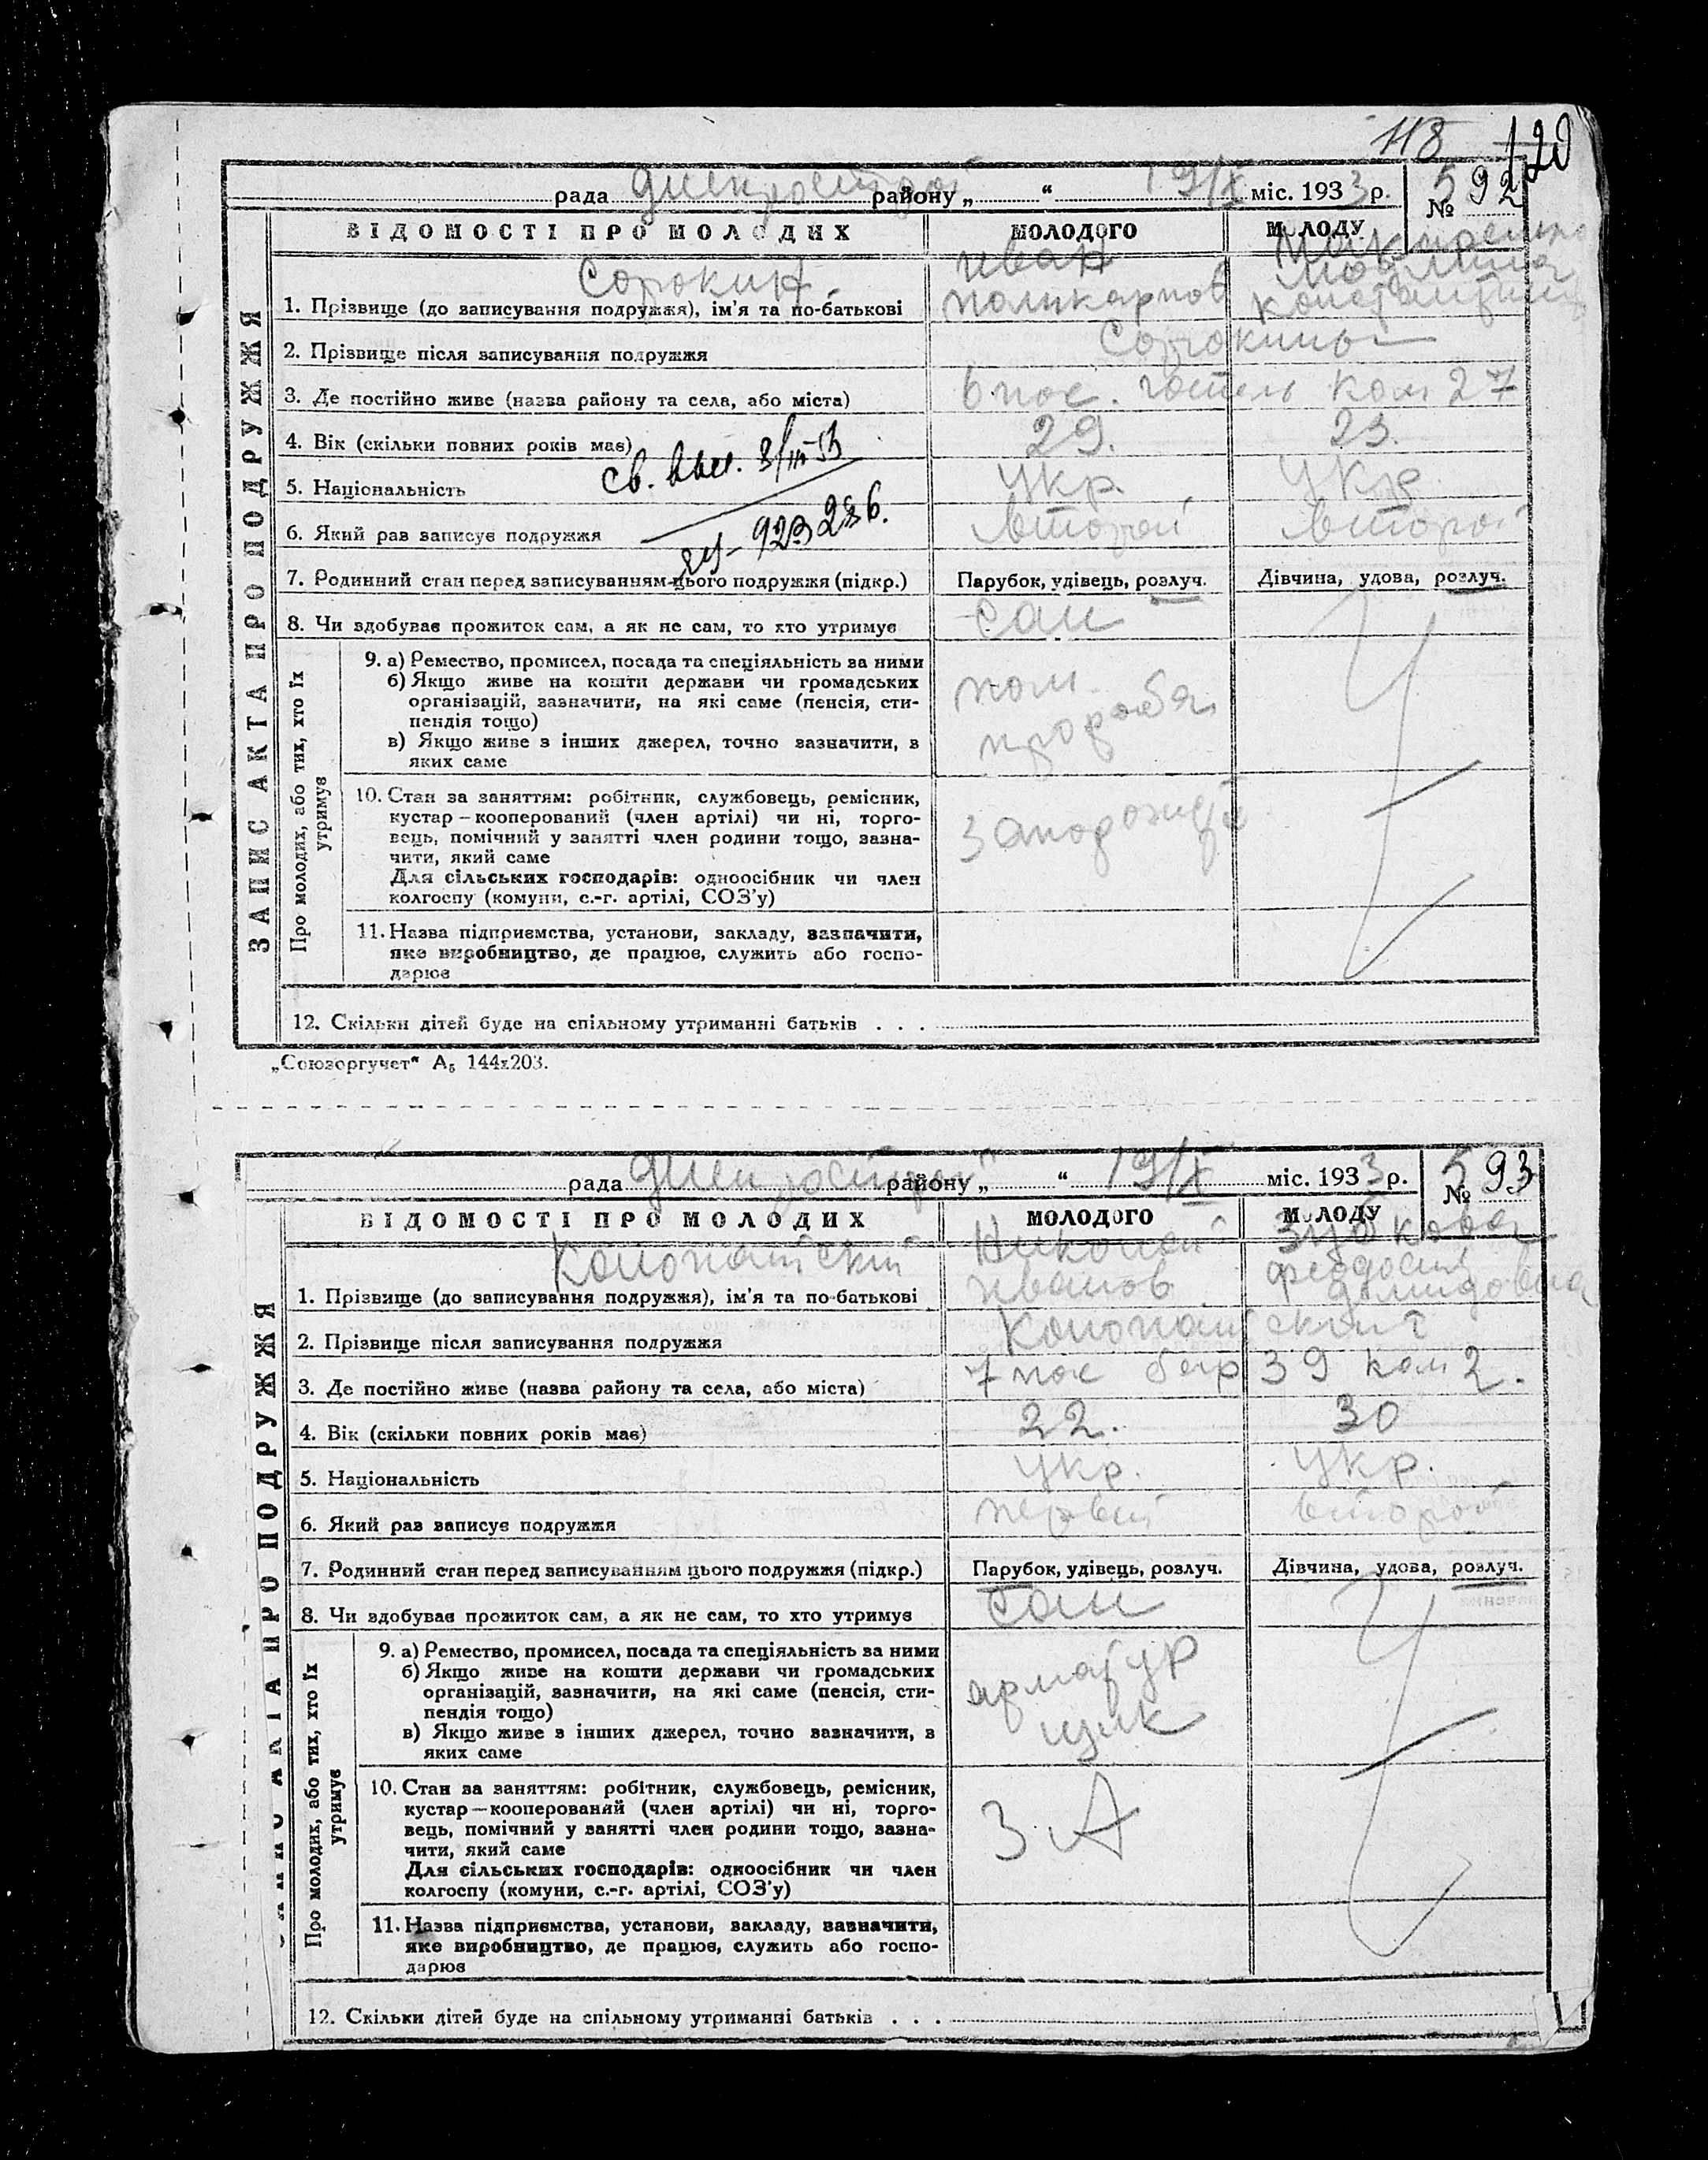 118 120
рада Днепрострой району „ “ 19/X міс. 1933 р. № 592
ВІДОМОСТІ ПРО МОЛОДИХ МОЛОДОГО МОЛОДУ
ЗАПИС АКТА ПРО ПОДРУЖЖЯ
Сорокин Иван
1. Прізвище (до записування подружжя), ім'я та по-батькові Поликарпов
2. Прізвище після записування подружжя Сорокины
3. Де постійно живе (назва району та села, або міста) 6 пос. гостель ком 27
4. Вік (скільки повних років має) 29. 23.
св. выс. 3/III-53
5. Національність Укр. Укр.
6. Який раз записує подружжя второй второй
923286.
7. Родинний стан перед записуванням цього подружжя (підкр.) Парубок, удівець, розлуч. Дівчина, удова, розлуч.
8. Чи здобував прожиток сам, а як не сам, то хто утримує сам
Про молодих, або тих, хто їх утримує
9. а) Ремество, промисел, посада та спеціяльність за ними
б) Якщо живе на кошти держави чи громадських
організацій, зазначити, на які саме (пенсія, сти-
пендія тощо)
в) Якщо живе з інших джерел, точно зазначити, в
яких саме
пом.
прораба
10. Стан за заняттям: робітник, службовець, ремісник,
кустар—кооперований (член артілі) чи ні, торго-
вець, помічний у занятті член родини тощо, зазна-
чити, який саме
Для сільських господарів: одноосібник чи член
колгоспу (комуни, с.-г. артілі, СОЗ'у)
11. Назва підприємства, установи, закладу, зазначити,
яке виробництво, де працює, служить або госпо-
дарює
12. Скільки дітей буде на спільному утриманні батьків . . .
„Союзоргучет“ А₅ 144х203.
рада Днепрострой району „ “ 19/X міс. 1933 р. № 593
ВІДОМОСТІ ПРО МОЛОДИХ МОЛОДОГО МОЛОДУ
ЗАПИС АКТА ПРО ПОДРУЖЖЯ
Николай
1. Прізвище (до записування подружжя), ім'я та по-батькові Иванов Феодосия
2. Прізвище після записування подружжя
3. Де постійно живе (назва району та села, або міста) 7 пос бар 39 ком 2.
4. Вік (скільки повних років має) 22. 30
5. Національність Укр. Укр.
6. Який раз записує подружжя первый второй
7. Родинний стан перед записуванням цього подружжя (підкр.) Парубок, удівець, розлуч. Дівчина, удова, розлуч.
8. Чи здобував прожиток сам, а як не сам, то хто утримує сам
Про молодих, або тих, хто їх утримує
9. а) Ремество, промисел, посада та спеціяльність за ними
б) Якщо живе на кошти держави чи громадських
організацій, зазначити, на які саме (пенсія, сти-
пендія тощо)
в) Якщо живе з інших джерел, точно зазначити, в
яких саме
арматур
щик
10. Стан за заняттям: робітник, службовець, ремісник,
кустар—кооперований (член артілі) чи ні, торго-
вець, помічний у занятті член родини тощо, зазна-
чити, який саме
Для сільських господарів: одноосібник чи член
колгоспу (комуни, с.-г. артілі, СОЗ'у)
З. А
11. Назва підприємства, установи, закладу, зазначити,
яке виробництво, де працює, служить або госпо-
дарює
12. Скільки дітей буде на спільному утриманні батьків . . .